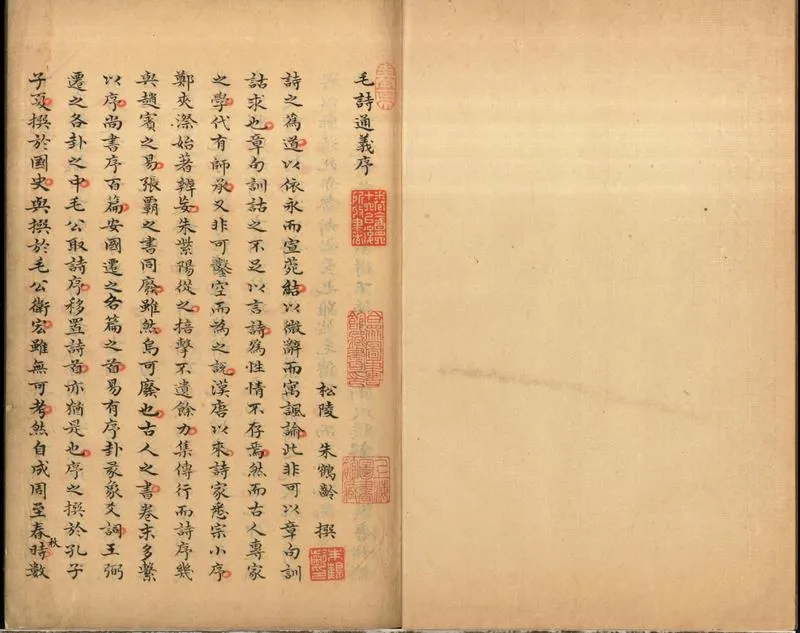 毛詩通義序
松陵 朱鶴齡 撰
詩之為道以依永而宣菀結以微辭而寓諷論此非可以章句訓
詁求也章句訓詁之不足以言詩為性情不存焉然而古人專家
之學代有師承又非可鑿空而為之說漢唐以來詩家悉宗小序
鄭夾漈始著辯妄朱紫陽從之掊擊不遺餘力集傳行而詩序幾
與趙賓之易張霸之書同廢雖然烏可廢也古人之書卷末多繫
以序尚書序百篇安國遷之各篇之首易有序卦彖象爻詞王弼
遷之各卦之中毛公取詩序移置詩首亦猶是也序之撰於孔子
子夏撰於國史與撰於毛公衛宏雖無可考然自成周至春時數
秋